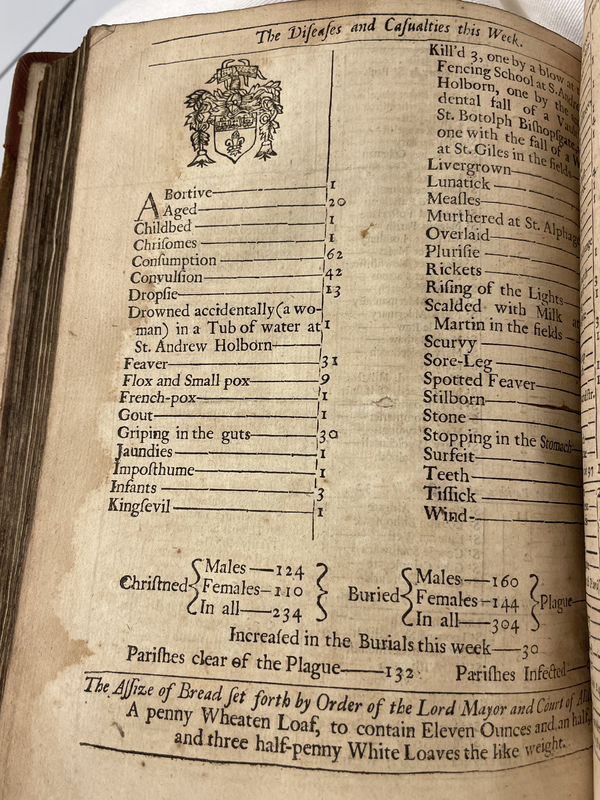 The Diſeaſes and Caſualties this Week.
ABortive 1
Aged 20
Childbed 1
Chriſomes 1
Conſumption 62
Convulſion 42
Dropſie 13
Drowned accidentally (a wo-
man) in a Tub of water at 1
St. Andrew Holborn
Feaver 31
Flox and Small pox 9
French-pox 1
Gout 1
Griping in the guts 30
Jaundies 1
Impoſthume 1
Infants 3
Kingſevil 1
Kill'd 3, one by a blow at
Fencing School at S.
Holborn, one by the
dental fall of a
St. Botolph Biſhopſgate
one with the fall of a
at St. Giles in the fields
Livergrown
Lunatick
Meaſles
Murthered at St. Alphage
Overlaid
Pluriſie
Rickets
Riſing of the Lights
Scalded with Milk at
Martin in the fields
Scurvy
Sore-Leg
Spotted Feaver
Stilborn
Stone
Stopping in the Stomach
Surfeit
Teeth
Tiſſick
Wind
Chriſtned { Males — 124
Females — 110
In all — 234 }
Buried { Males — 160
Females — 144
In all — 304 } Plague
Increaſed in the Burials this week — 30
Pariſhes clear of the Plague — 132. Pariſhes Infected
The Aſſize of Bread ſet forth by Order of the Lord Mayor and Court of
A penny Wheaten Loaf, to contain Eleven Ounces and an half
and three half-penny White Loaves the like weight.